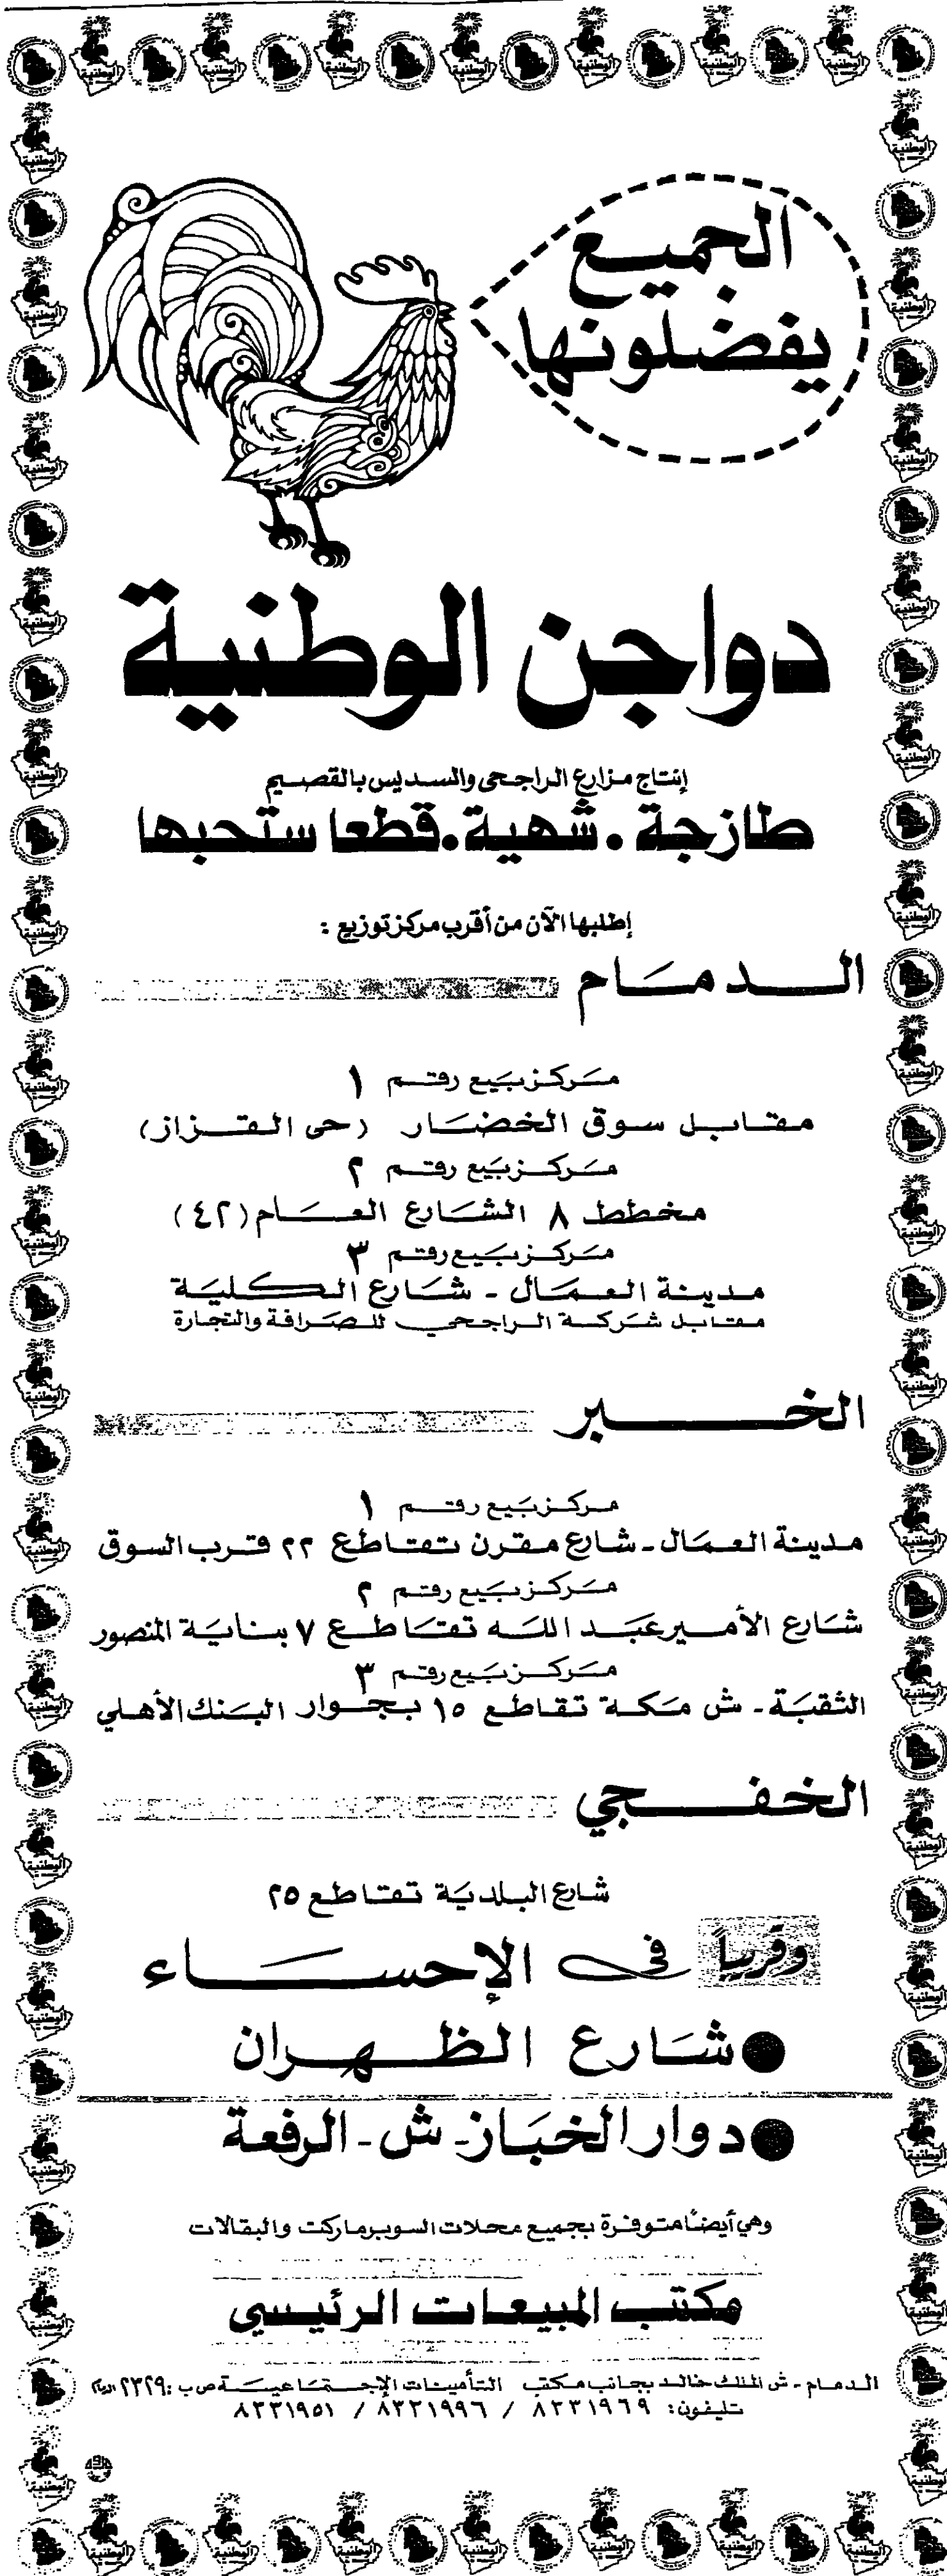 الجميع
يفضلونها
دواجن الوطنية
إنتاج مزارع الراجحى والسديس بالقصيم
طازجة • شهية • قطعا ستحبها
إطلبها الآن من أقرب مركز توزيع :
الدمام
مركز بيع رقم ١
مقابل سوق الخضار (حى القزاز)
مركز بيع رقم ٢
مخطط ٨ الشارع العام (٤٢)
مركز بيع رقم ٣
مدينة العمال - شارع الكلية
مقابل شركة الراجحي للصرافة والتجارة
الخبر
مركز بيع رقم ١
مدينة العمال - شارع مقرن تقاطع ٢٢ قرب السوق
مركز بيع رقم ٢
شارع الأمير عبد الله تقاطع ٧ بناية المنصور
مركز بيع رقم ٣
الثقبة - ش مكة تقاطع ١٥ بجوار البنك الأهلي
الخفجي
شارع البلدية تقاطع ٢٥
وقريباً في الإحساء
● شارع الظهران
● دوار الخباز - ش - الرفعة
وهي أيضًا متوفرة بجميع محلات السوبرماركت والبقالات
مكتب المبيعات الرئيسي
الدمام - ش الملك خالد بجانب مكتب التأمينات الإجتماعية ص ب : ٢٣٢٩
تليفون : ٨٣٣١٩٦٩ / ٨٣٣١٩٩٦ / ٨٣٣١٩٥١